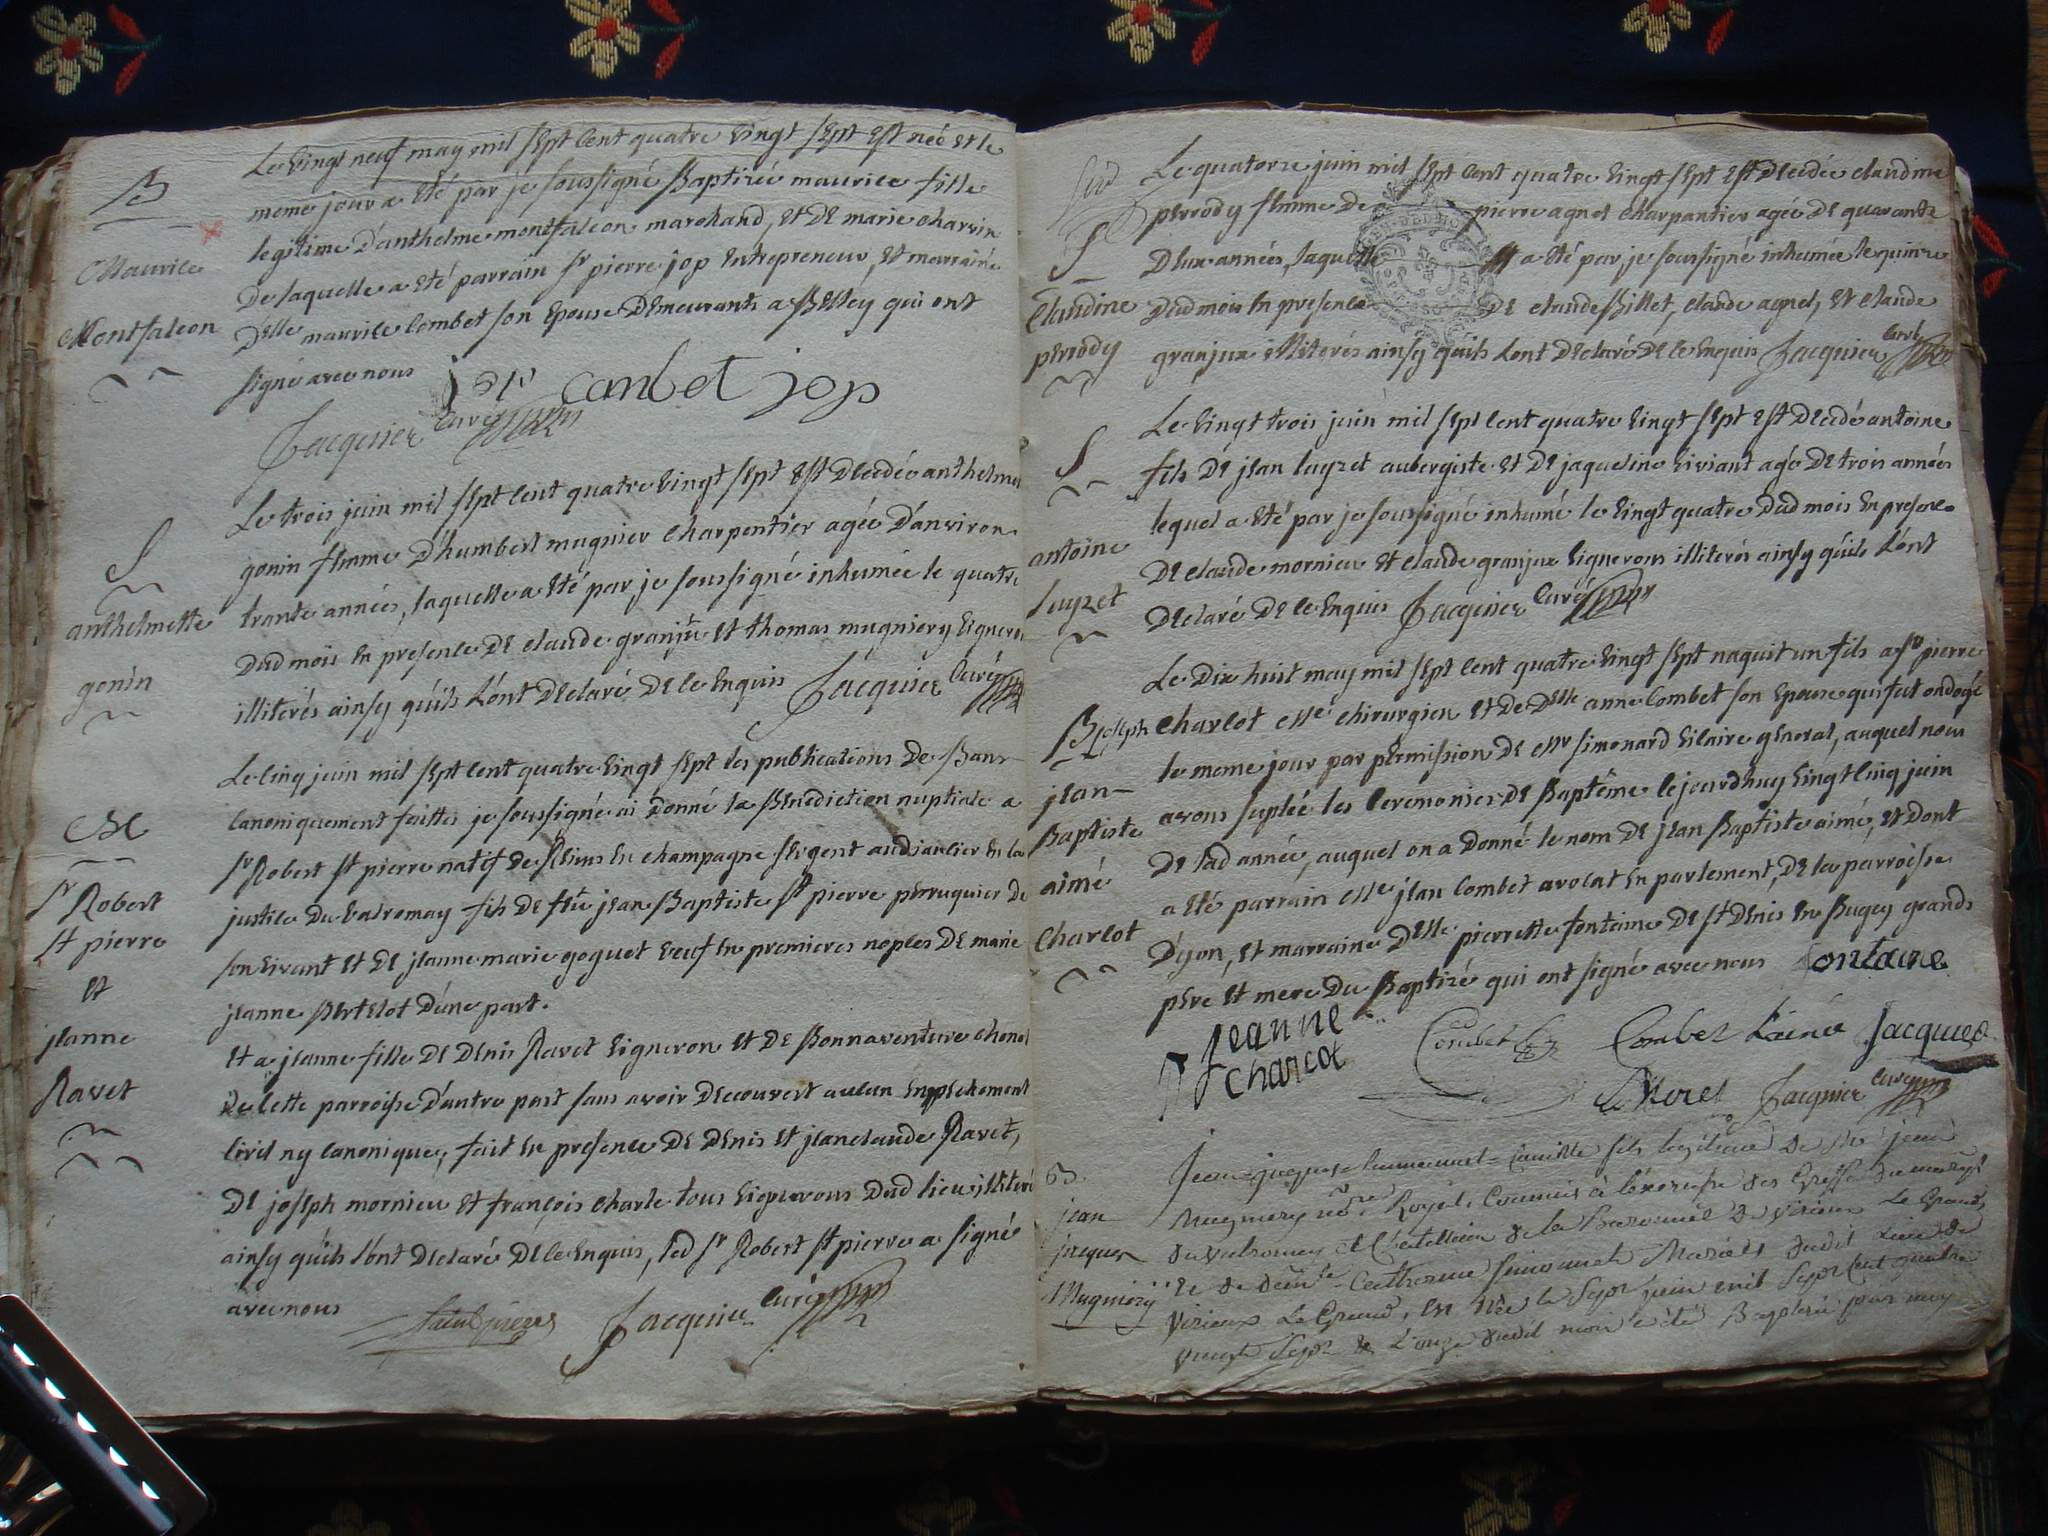 B
Maurice
Montfalcon
Le vingt neuf may mil sept cent quatre vingt sept est neé et le
meme jour a eté par je soussigné Baptizée maurice fille
legitime d'anthelme montfalcon marchand, et de marie charvin
de laquelle a eté parrain sr pierre jop entrepreneur, et marraine
delle maurice Combet son epouse demeurants a Belley qui ont
signé avec nous
combet jop
Jacquier curé
S
anthelmette
gonin
Le trois juin mil sept cent quatre vingt sept est decedée anthelmette
gonin femme d'humbert mugnier charpentier agée d'anviron
trante années, laquelle a eté par je soussigné inhumée le quatre
dud mois en presence de claude granjux et thomas mugniery vignerons
illiterés ainsy qu'ils l'ont declaré de ce enquis Jacquier curé
M
sr Robert
st pierre
et
jeanne
Ravet
Le cinq juin mil sept cent quatre vingt sept les publications de Bans
canoniquement faittes je soussigné ai donné la Benediction nuptiale a
sr Robert st pierre natif de Reims en champagne sergent audiancier en la
justice du valromay fils de feu jean Baptiste st pierre perruquier de
son vivant et de jeanne marie goguet veuf en premieres nopces de marie
jeanne Bertelot d'une part.
et a jeanne fille de denis Ravet vigneron et de Bonnaventure
de cette parroisse d'autre part sans avoir decouvert aucun empechement
civil ny canonique, fait en presence de denis et jean claude Ravet,
de joseph mornieu et françois charle tous vignerons dud lieu illiterés
ainsy qu'ils l'ont declaré de ce enquis, led sr Robert st pierre a signé
avec nous
Saint pierre Jacquier curé
S
Claudine
perrody
Le quatorze juin mil sept cent quatre vingt sept est decedée claudine
perrody femme de pierre agnel charpantier agée de quarante
deux années, laquelle a eté par je soussigné inhumée le quinze
dud mois en presence de claude Billet, claude agnel, et claude
granjux illiterés ainsy qu'ils l'ont declaré de ce enquis Jacquier curé
S
antoine
luyzet
Le vingt trois juin mil sept cent quatre vingt sept est decedé antoine
fils de jean luyzet aubergiste et de jaqueline viviant agé de trois années
lequel a eté par je soussigné inhumé le vingt quatre dud mois en presence
de claude mornieu et claude granjux vignerons illiterés ainsy qu'ils l'ont
declaré de ce enquis Jacquier curé
B joseph
jean
Baptiste
aimé
Charlot
Le dix huit may mil sept cent quatre vingt sept naquit un fils a sr pierre
Charlot chirurgien et de delle anne Combet son epouse qui fut ondoyé
le meme jour par permission de mr simonard vicaire general, auquel nous
avons suplée les ceremonies de Baptême le jourdhuy vingt cinq juin
de lad année, auquel on a donné le nom de jean Baptiste aimé, et dont
a eté parrain jean Combet avocat en parlement, de la parroisse
d'yon, et marraine delle pierrette fontaine de st denis en Bugey grands
pere et mere du Baptizé qui ont signé avec nous fontaine
Jeanne
charlot
Combet Combet L'ainée Jacquier
Jacquier curé
B
jean
jacques
Mugniery
Jean jacques fils legitime de jean
Mugniery Royal, Commis à l'exercise des Greffes du
du valromey et Chatellain de la Baronnie de Virieux Le Grand,
et de Catherine dudit Lieu de
Virieux Le Grand, est née le sept juin mil sept cent quatre
vingt sept & L'onze dudit mois a été Baptisé par moy